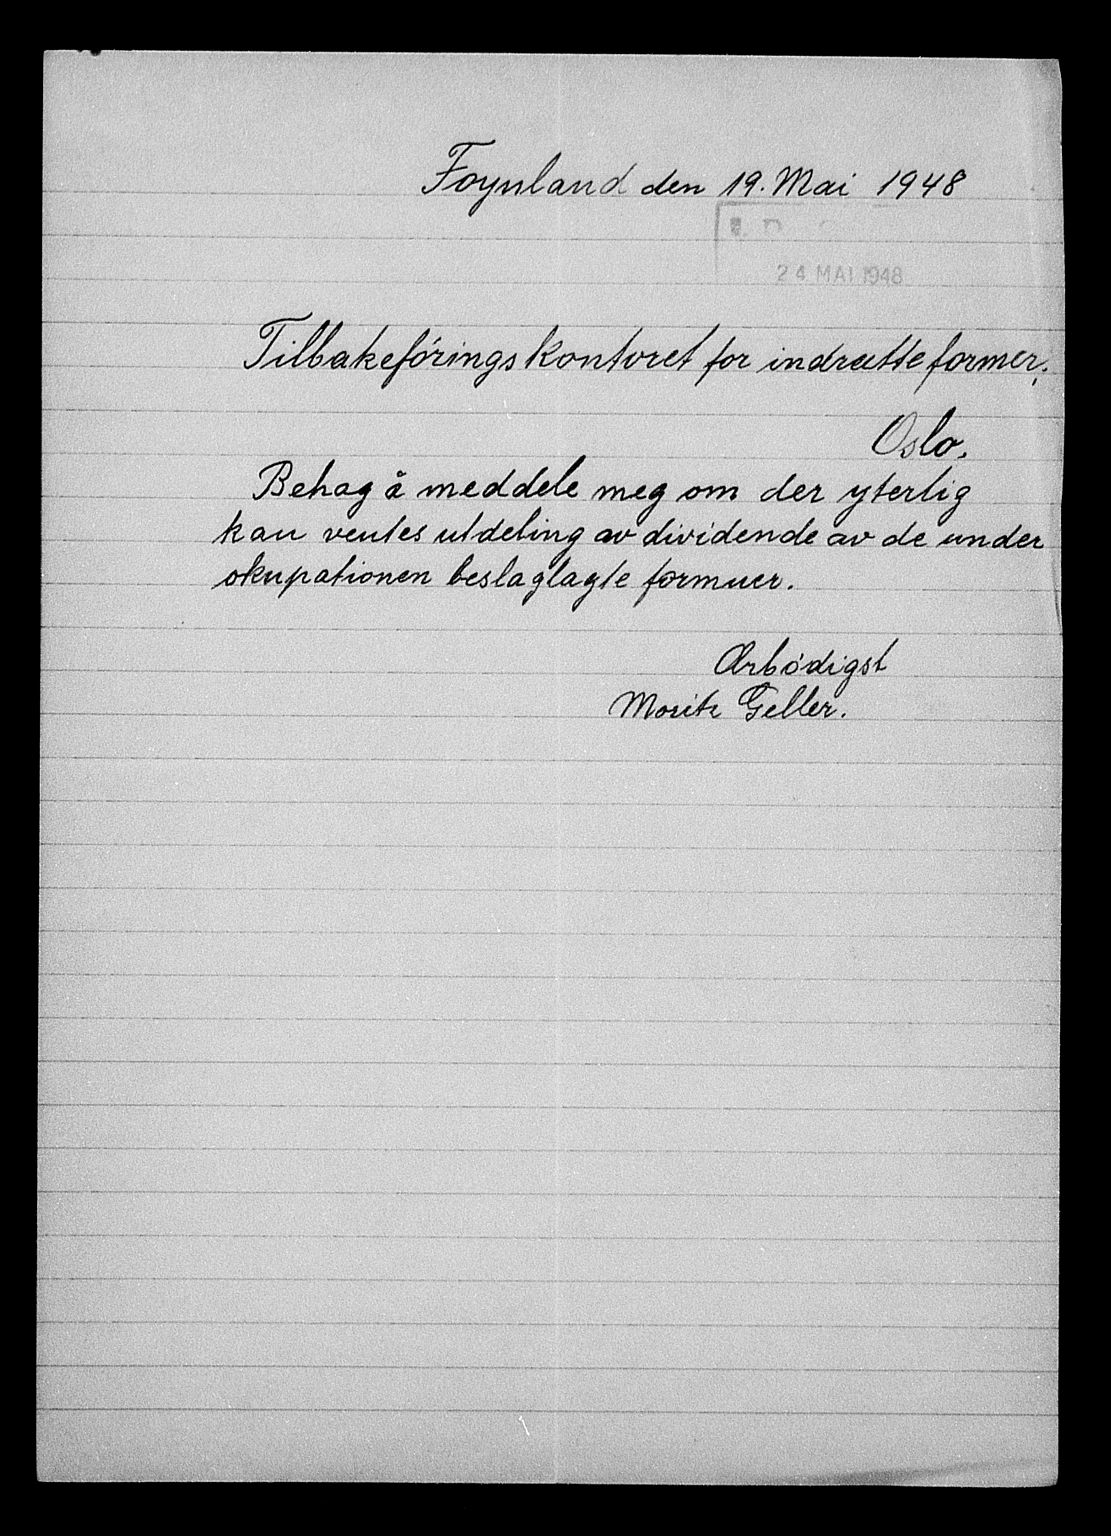 Foynland den 19. Mai 1948
24 MAI 1948
Tilbakeførings kontoret for indratte former,
Oslo.
Behag å meddele meg om der yterlig
kan ventes utdeling av dividende av de under
okupationen beslaglagte formuer.
Ærbødigst
Moritz Geller.